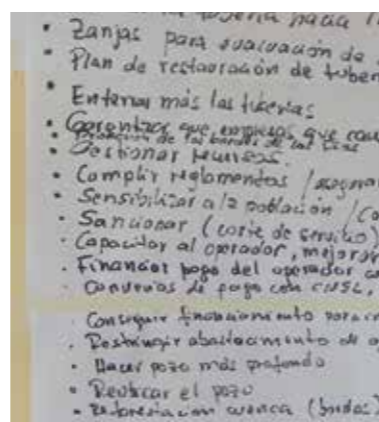 la tubería hacia
• Zanjas para evacuación de
• Plan de restauración de tuber
• Enterrar más las tuberias
• Garantizar que empresas que cau
• Protección de los bordes de los
• Gestionar recursos.
• Cumplir reglamentos / asegurar
• Sensibilizar a la población / Co
• Sancionar (corte de servicio)
• Capacitar al operador, mejorar
• Financiar pago del operador
• Convenios de pago con CNEL,
• Conseguir financiamiento para
• Restringir abastecimiento de a
• Hacer pozo más profundo
• Reubicar el pozo
• Reforestación cuenca (bordes)